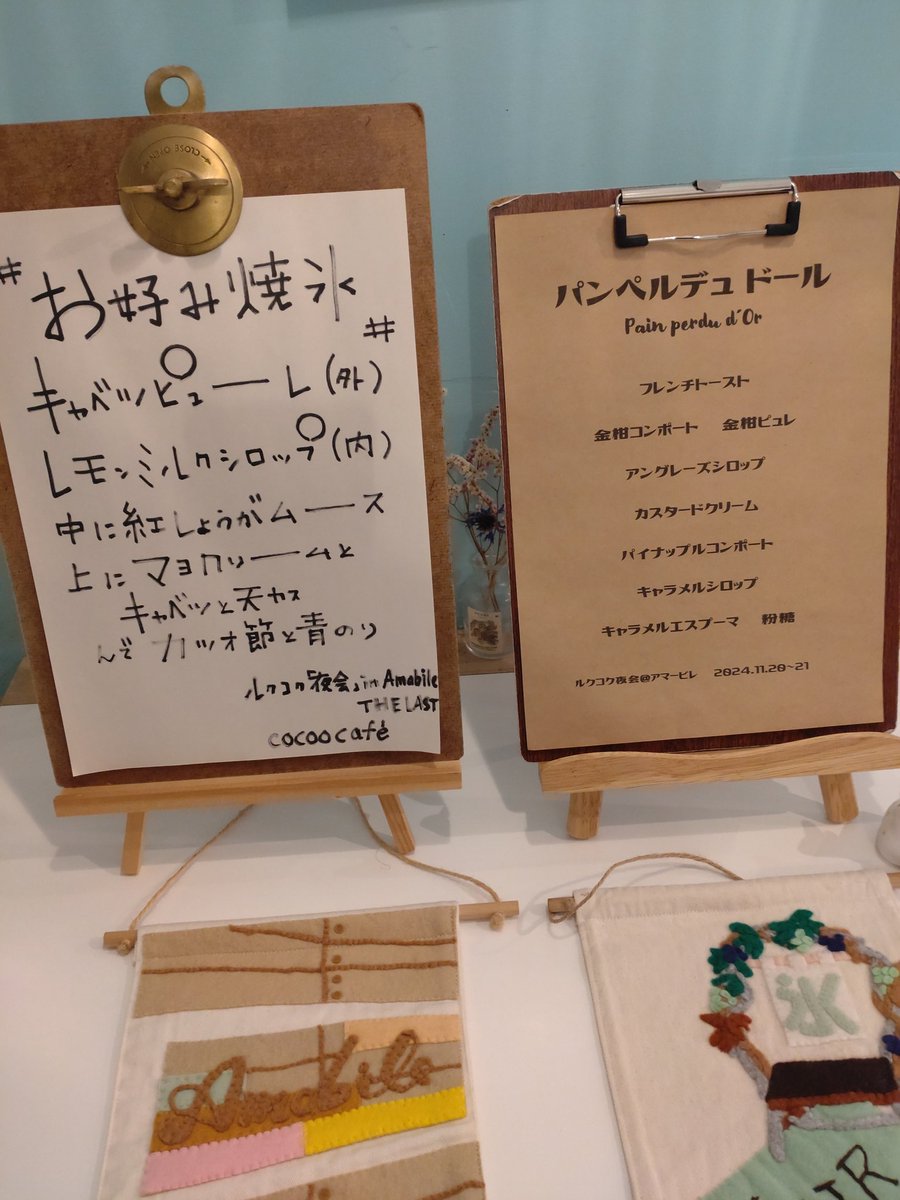 CLOSE OPEN
#お好み焼氷#
キャベツピューレ(外)
レモンミルクシロップ(内)
中に紅しょうがムース
上にマヨクリームと
キャベツと天カス
んで カツオ節と青のり
ルクコク『夜会』in Amabile
THE LAST
cocoo café
パンペルデュ ドール
Pain perdu d'Or
フレンチトースト
金柑コンポート 金柑ピュレ
アングレーズシロップ
カスタードクリーム
パイナップルコンポート
キャラメルシロップ
キャラメルエスプーマ 粉糖
ルクコク夜会@アマービレ 2024.11.20~21
Amabile
氷